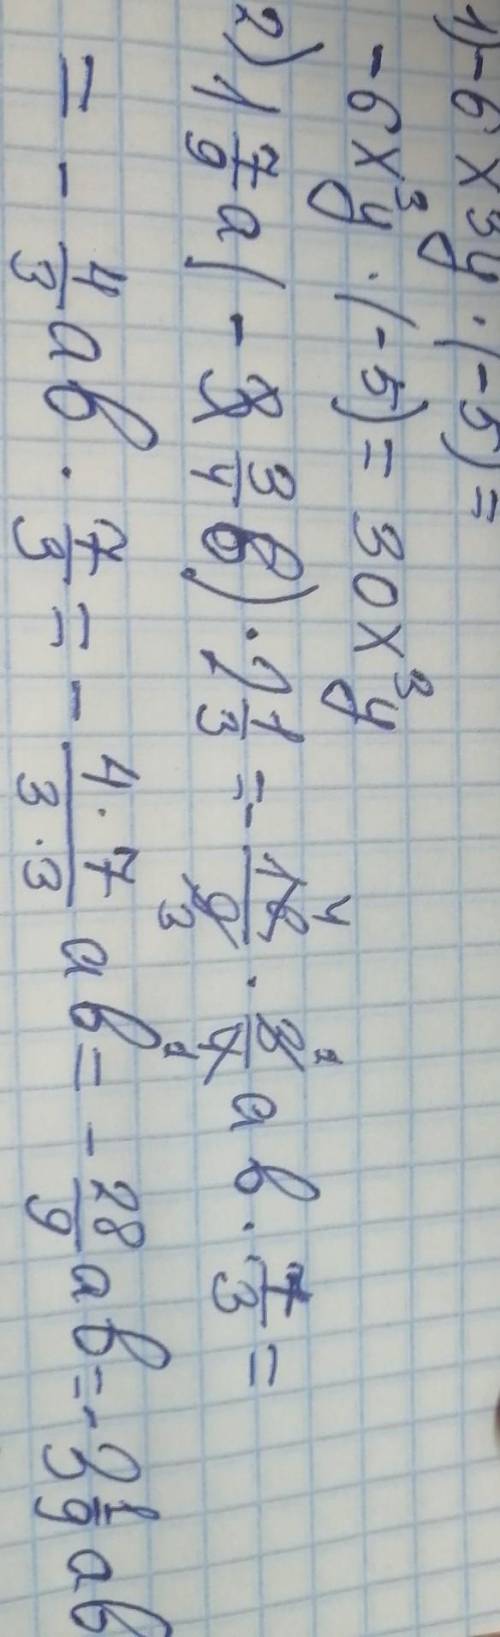 1) -6x³y · (-5) =
-6x³y · (-5) = 30x³y
2) 1 7/9 a (- 3/4 b) · 2 1/3 = - 16/9 · 3/4 ab · 7/3 =
= - 4/3 ab · 7/3 = - 4·7/3·3 ab = - 28/9 ab = - 3 1/9 ab